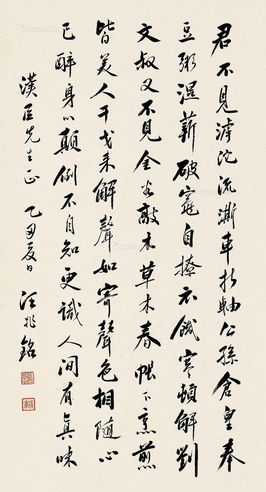 君不見滹沱流澌車折軸公孫倉皇奉
豆粥濕薪破竈自燎衣饑寒頓解劉
文叔又不見金谷敲氷草木春帳下烹煎
皆美人干戈未解聲如寄聲色相隨心
已醉身心顛倒不自知更識人間有真味
漢臣先生正 乙丑夏日 汪兆銘